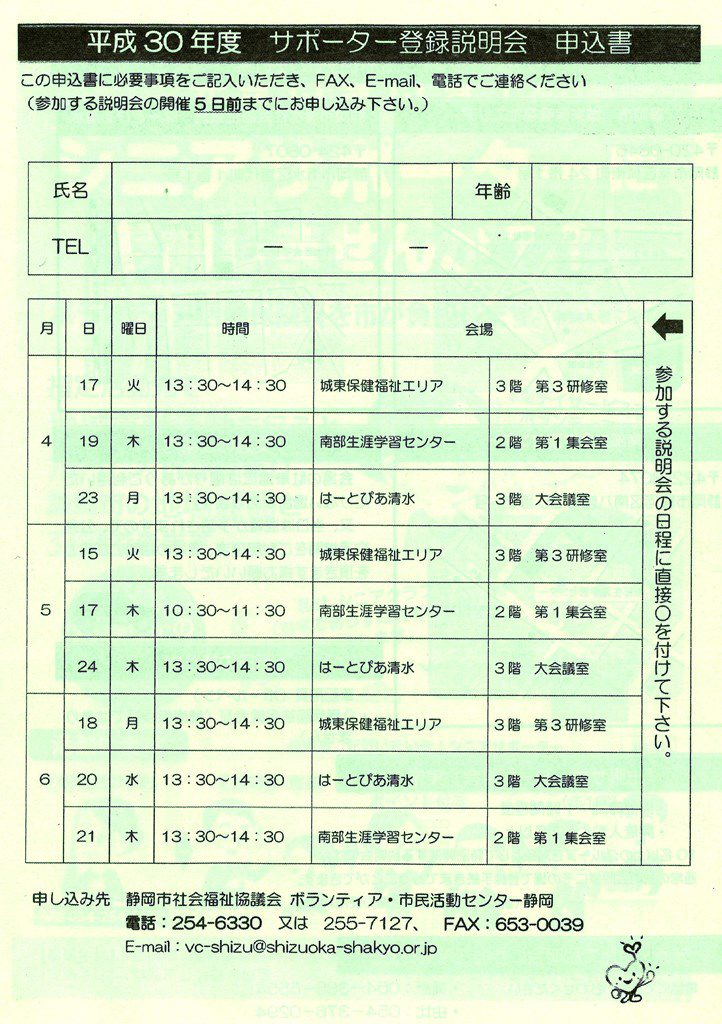 平成30年度 サポーター登録説明会 申込書
この申込書に必要事項をご記入いただき、FAX、E-mail、電話でご連絡ください
(参加する説明会の開催5日前までにお申し込み下さい。)
氏名 年齢
TEL ― ―
月 日 曜日 時間 会場
4 17 火 13:30~14:30 城東保健福祉エリア 3階 第3研修室
19 木 13:30~14:30 南部生涯学習センター 2階 第1集会室
23 月 13:30~14:30 はーとぴあ清水 3階 大会議室
5 15 火 13:30~14:30 城東保健福祉エリア 3階 第3研修室
17 木 10:30~11:30 南部生涯学習センター 2階 第1集会室
24 木 13:30~14:30 はーとぴあ清水 3階 大会議室
6 18 月 13:30~14:30 城東保健福祉エリア 3階 第3研修室
20 水 13:30~14:30 はーとぴあ清水 3階 大会議室
21 木 13:30~14:30 南部生涯学習センター 2階 第1集会室
←参加する説明会の日程に直接〇を付けて下さい。
申し込み先 静岡市社会福祉協議会 ボランティア・市民活動センター静岡
電話:254-6330 又は 255-7127、 FAX:653-0039
E-mail:vc-shizu@shizuoka-shakyo.or.jp